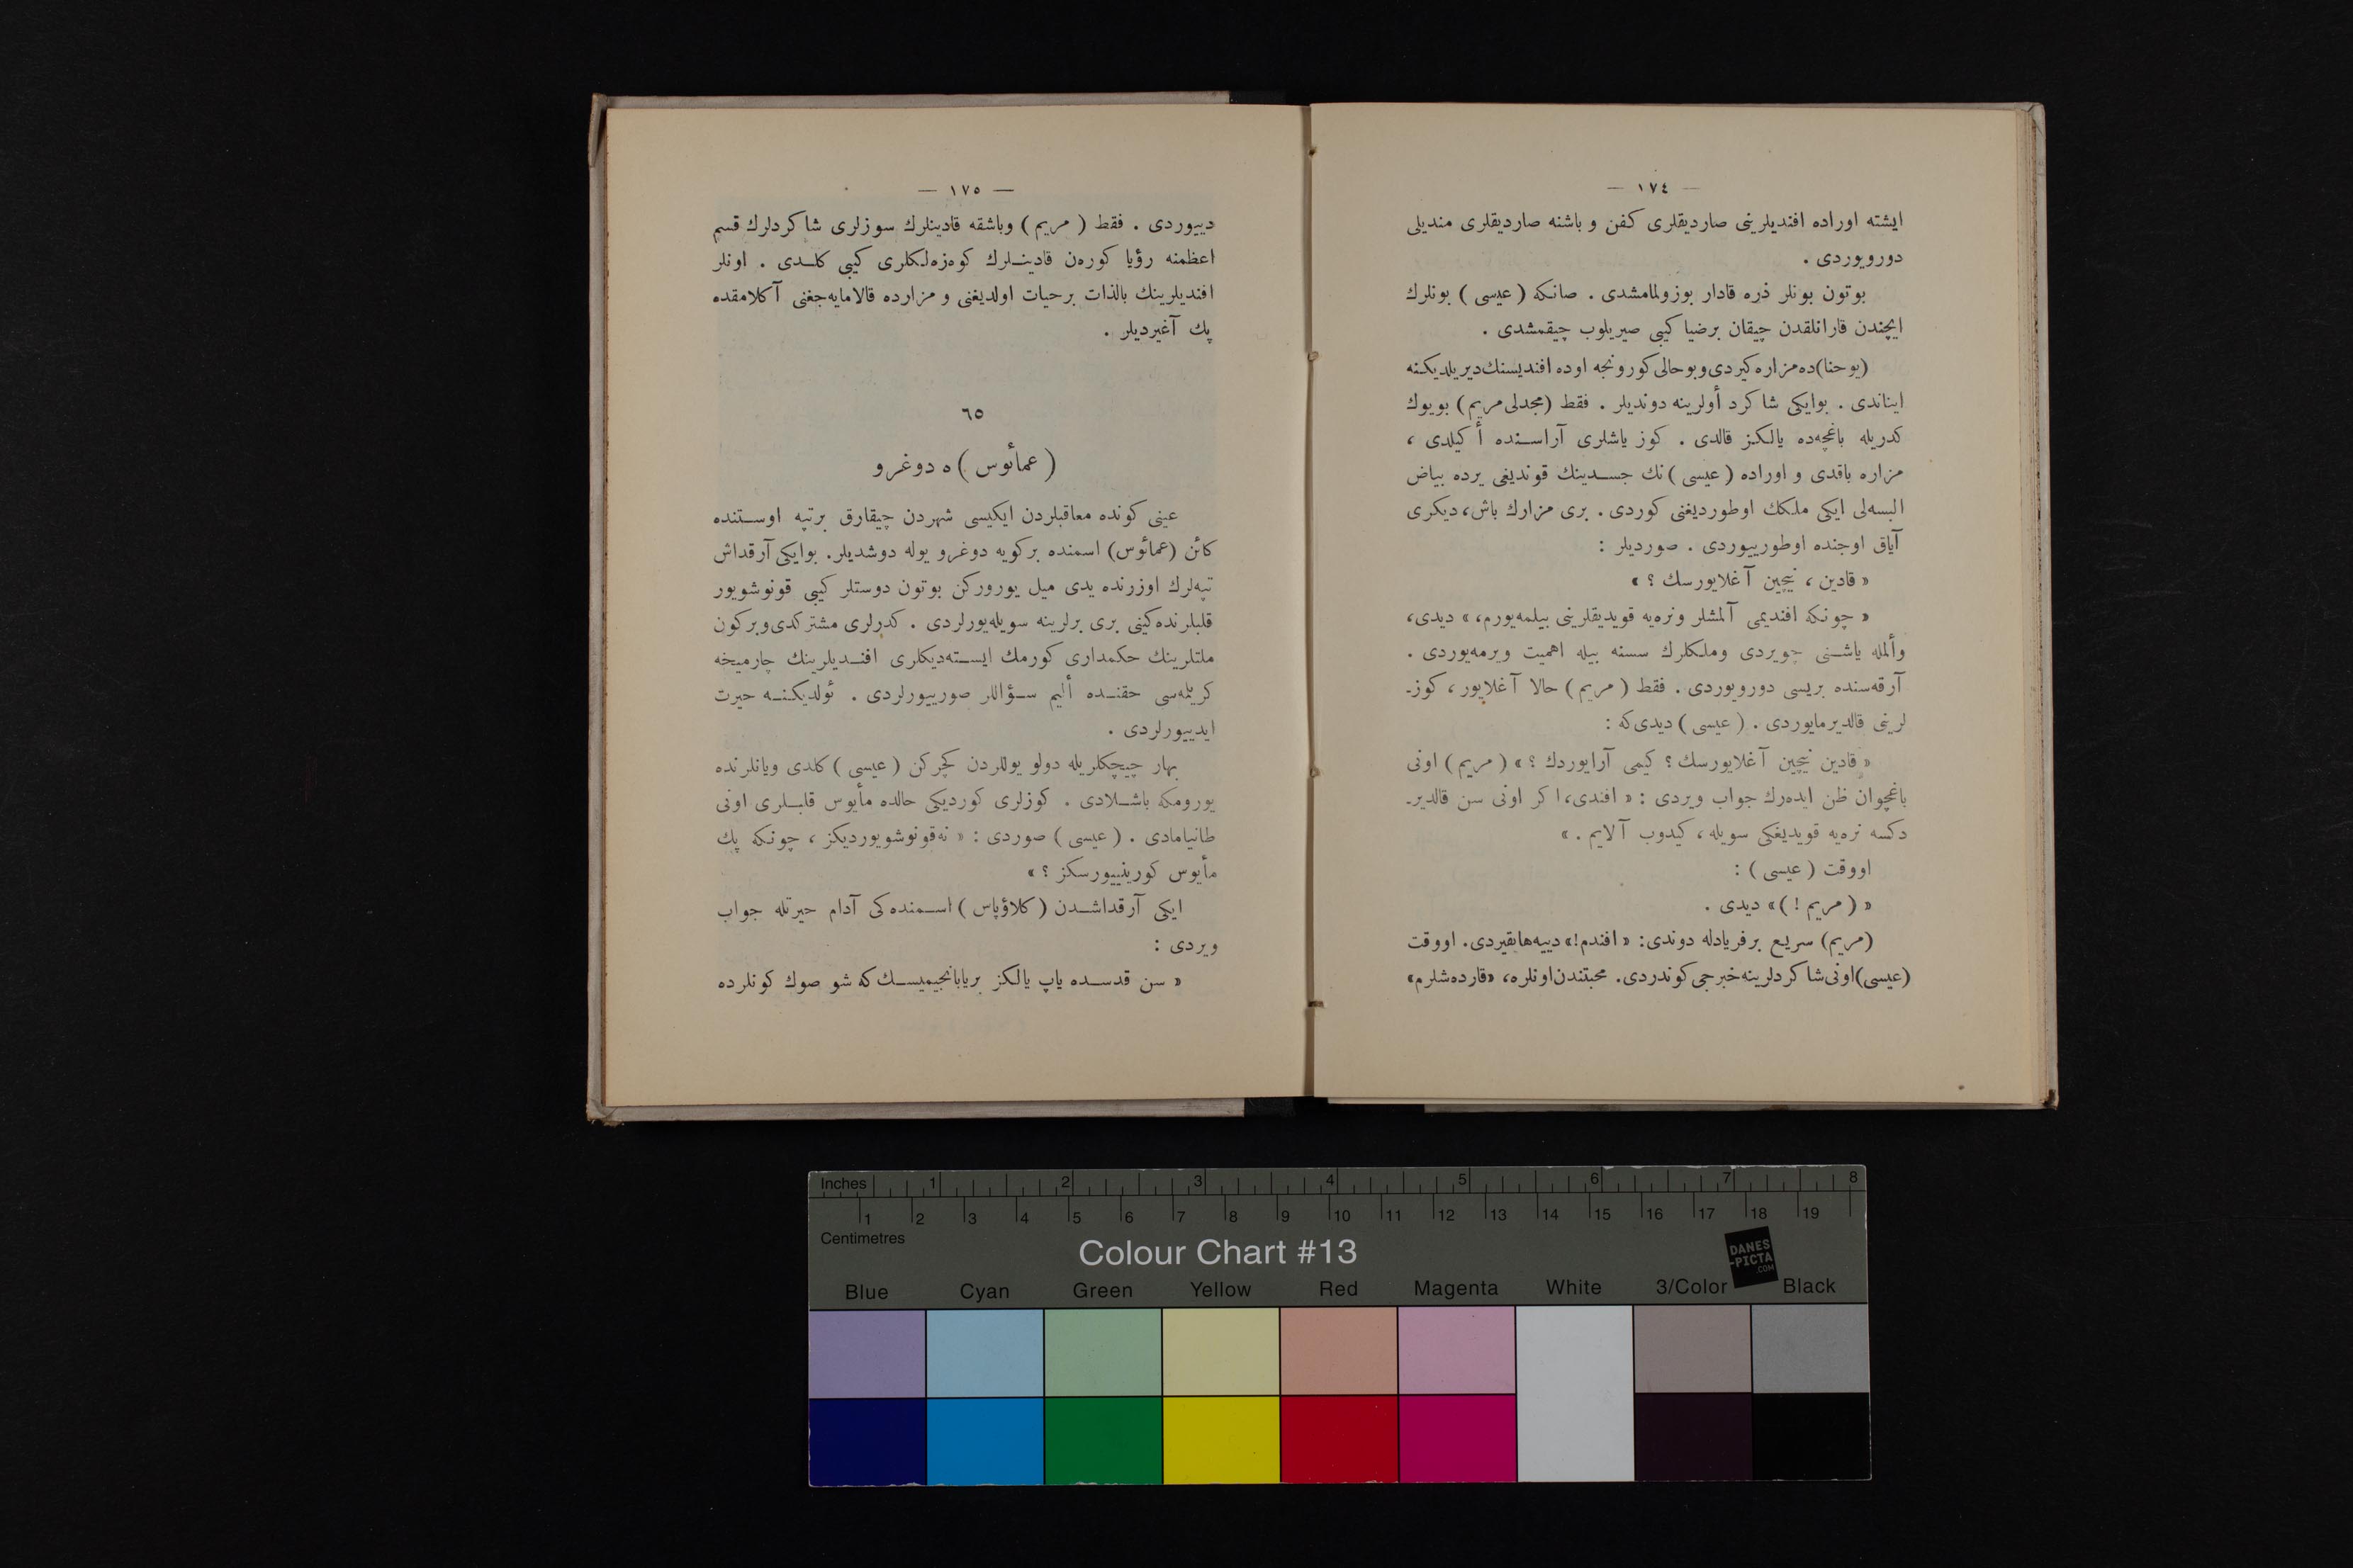 — ١٧٤ —
ایشته اوراده افندیلرینی صاردیقلری کفن و باشنه صاردیقلری مندیلی
دورویوردی .
بوتون بونلر ذره قادار بوزولمامشدی . صانکه ( عیسی ) بونلرك
ایچندن قارانلقدن چیقان برضیا کیبی صیریلوب چیقمشدی .
(یوحنا) ده مزاره کیردی وبوحالی کورونجه اوده افندیسنك دیریلدیکنه
ایناندی . بوایکی شاکرد أولرینه دوندیلر . فقط (مجدلی مریم) بویوك
کدریله باغچه‌ده یالکز قالدی . کوز یاشلری آراسنده أکیلدی ،
مزاره باقدی و اوراده ( عیسی ) نك جسدینك قوندیغی یرده بیاض
البسه‌لی ایکی ملکك اوطوردیغنی کوردی . بری مزارك باش، دیکری
آیاق اوجنده اوطورییوردی . صوردیلر :
« قادین ، نیچین آغلایورسك ؟ »
« چونکه افندیمی آلمشلر ونره‌یه قویدیقلرینی بیلمه‌یورم، » دیدی،
وألمله یاشنی چویردی وملکلرك سسنه بیله اهمیت ویرمه‌یوردی .
آرقه‌سنده بریسی دورویوردی . فقط ( مریم ) حالا آغلایور ، کوز-
لرینی قالدیرمایوردی . ( عیسی ) دیدی که :
« قادین نیچین آغلایورسك ؟ کیمی آرایوردك ؟ » ( مریم ) اونی
باغچوان ظن ایده‌رك جواب ویردی : « افندی، اکر اونی سن قالدیر-
دکسه نره‌یه قویدیغکی سویله ، کیدوب آلایم . »
اووقت ( عیسی ) :
« ( مریم ! ) » دیدی .
(مریم) سریع برفریادله دوندی: « افندم!» دییه هایقیردی. اووقت
(عیسی) اونی شاکردلرینه خبرجی کوندردی. محبتندن اونلره، «قارده‌شلرم»
— ١٧٥ —
دییوردی . فقط ( مریم ) وباشقه قادینلرك سوزلری شاکردلرك قسم
اعظمنه رؤیا کوره‌ن قادینلرك کوه‌زه‌لکلری کیبی کلدی . اونلر
افندیلرینك بالذات برحیات اولدیغنی و مزارده قالامایه‌جغنی آکلامقده
پك آغیردیلر .
٦٥
( عمائوس ) ه دوغرو
عینی کونده معاقبلردن ایکیسی شهردن چیقارق برتپه اوستنده
کائن (عمائوس) اسمنده برکویه دوغرو یوله دوشدیلر. بوایکی آرقداش
تپه‌لرك اوزرنده یدی میل یورورکن بوتون دوستلر کیبی قونوشویور
قلبلرنده‌کینی بری برلرینه سویله‌یورلردی . کدرلری مشترکدی وبرکون
ملتلرینك حکمداری کورمك ایسته‌دیکلری افندیلرینك چارمیخه
کریله‌سی حقنده ألیم سؤاللر صورییورلردی . ئولدیکنه حیرت
ایدییورلردی .
بهار چیچکلریله دولو یوللردن کچرکن ( عیسی ) کلدی ویانلرنده
یورومکه باشلادی . کوزلری کوردیکی حالده مأیوس قلبلری اونی
طانیامادی . ( عیسی ) صوردی : « نه قونوشویوردیکز ، چونکه پك
مأیوس کورینییورسکز ؟ »
ایکی آرقداشدن ( کلاؤپاس ) اسمنده‌کی آدام حیرتله جواب
ویردی :
« سن قدسده یاپ یالکز بریابانجیمیسك که شو صوك کونلرده
Inches 1 2 3 4 5 6 7 8
1 2 3 4 5 6 7 8 9 10 11 12 13 14 15 16 17 18 19
Centimetres
Colour Chart #13
DANES
-PICTA
.COM
Blue Cyan Green Yellow Red Magenta White 3/Color Black